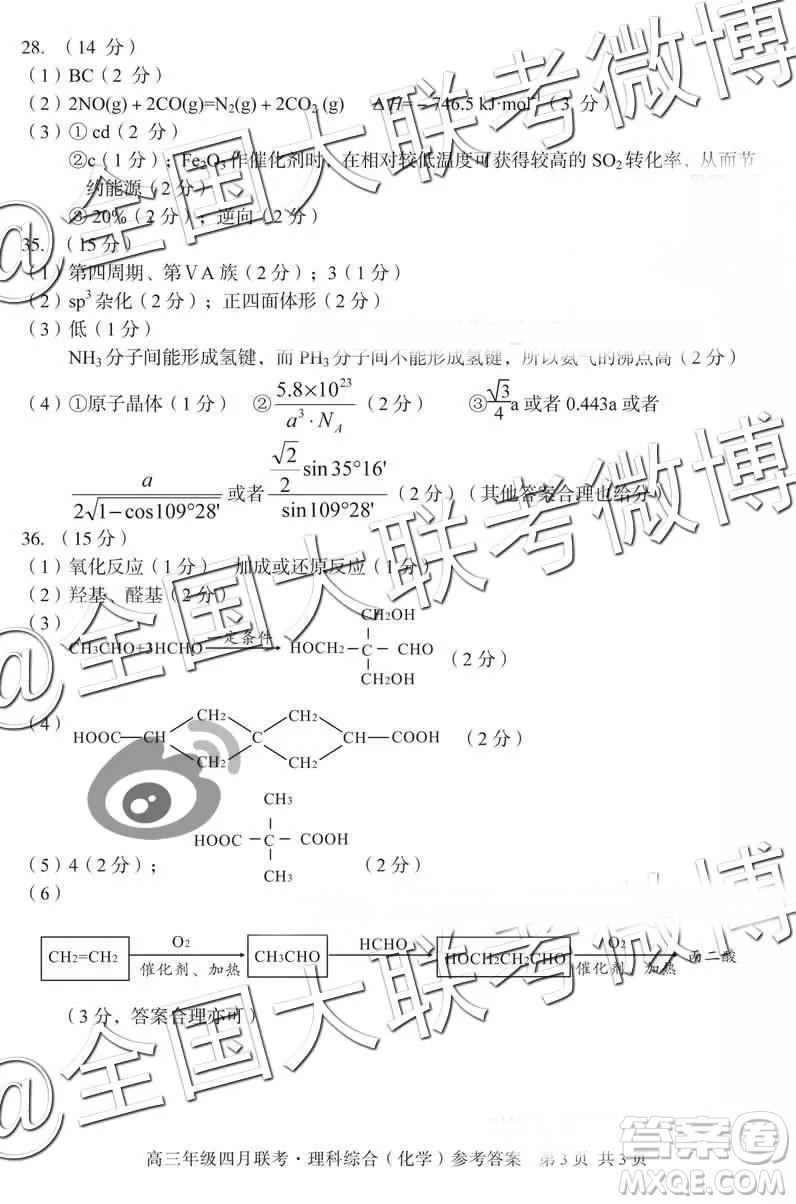 28. （14 分）
（1）BC（2 分）
（2）2NO(g) + 2CO(g)=N₂(g) + 2CO₂ (g)　ΔH= −746.5 kJ·mol⁻¹（3 分）
（3）① cd（2 分）
②c（1分）；Fe₂O₃作催化剂时，在相对较低温度可获得较高的 SO₂转化率，从而节
约能源（2分）
③ 20%（2分）；逆向（2分）
35. （15分）
（1）第四周期、第ⅤA 族（2分）；3（1分）
（2）sp³杂化（2分）；正四面体形（2分）
（3）低（1分）
NH₃分子间能形成氢键，而 PH₃分子间不能形成氢键，所以氨气的沸点高（2分）
（4）①原子晶体（1分） ②5.8×10²³/(a³·N_A)（2分） ③√3/4 a 或者 0.443a 或者
a/(2√(1−cos109°28′)) 或者 (√2/2 sin35°16′)/sin109°28′（2分）（其他答案合理也给分）
36. （15分）
（1）氧化反应（1分） 加成或还原反应（1分）
（2）羟基、醛基（2分）
（3）
CH₂OH
CH3CHO+3HCHO 一定条件 HOCH2 — C — CHO （2分）
CH₂OH
（4）
CH2 CH2
HOOC CH C CH COOH （2分）
CH2 CH2
CH3
HOOC C COOH
（5）4（2分）； （2分）
CH3
（6）
CH2=CH2 O2 催化剂、加热 CH3CHO HCHO HOCH2CH2CHO O2 催化剂、加热 丙二酸
（3分，答案合理亦可）
高三年级四月联考·理科综合（化学）参考答案　第3页 共3页
@全国大联考微博
@全国大联考微博
@全国大联考微博
答案卷
MXQE.COM